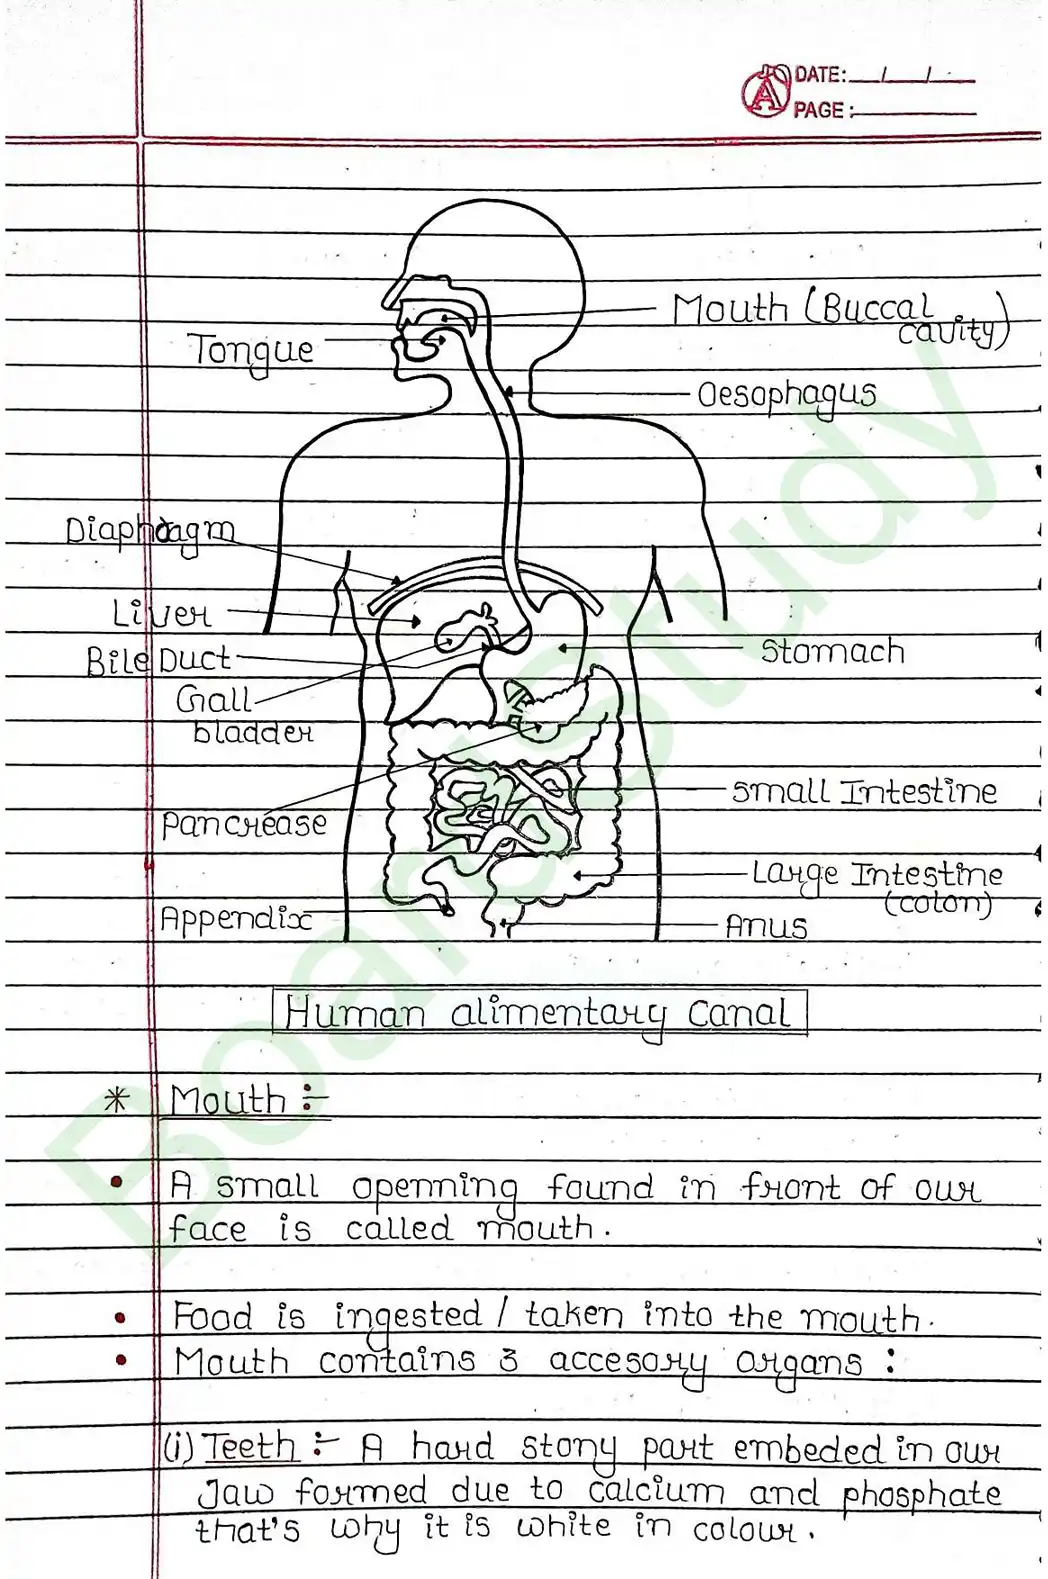 DATE: / /
PAGE :
Mouth (Buccal
cavity)
Tongue
Oesophagus
Diaphragm
Liver
Bile Duct
Stomach
Gall
bladder
Small Intestine
Pancrease
Large Intestine
(colon)
Appendix
Anus
Human alimentary Canal
* Mouth :-
• A small openning found in front of our
face is called mouth.
• Food is ingested / taken into the mouth.
• Mouth contains 3 accesory organs :
(i) Teeth :- A hard stony part embeded in our
Jaw formed due to calcium and phosphate
that's why it is white in colour.
Board Study